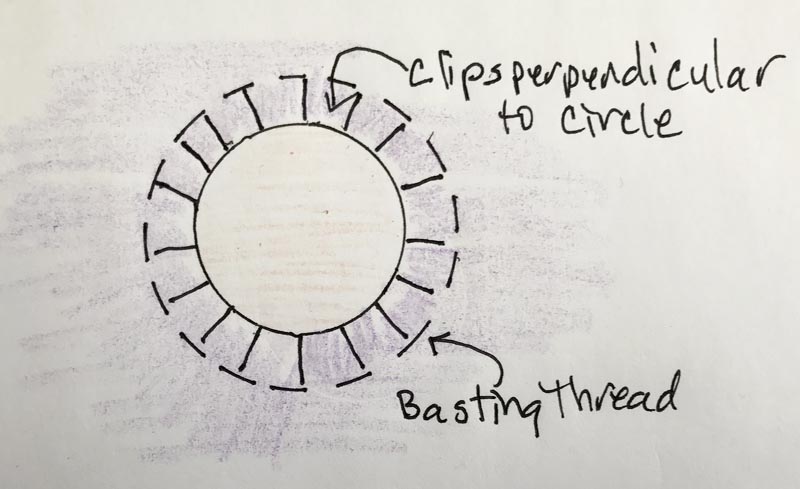 clips perpendicular
to circle
Basting Thread